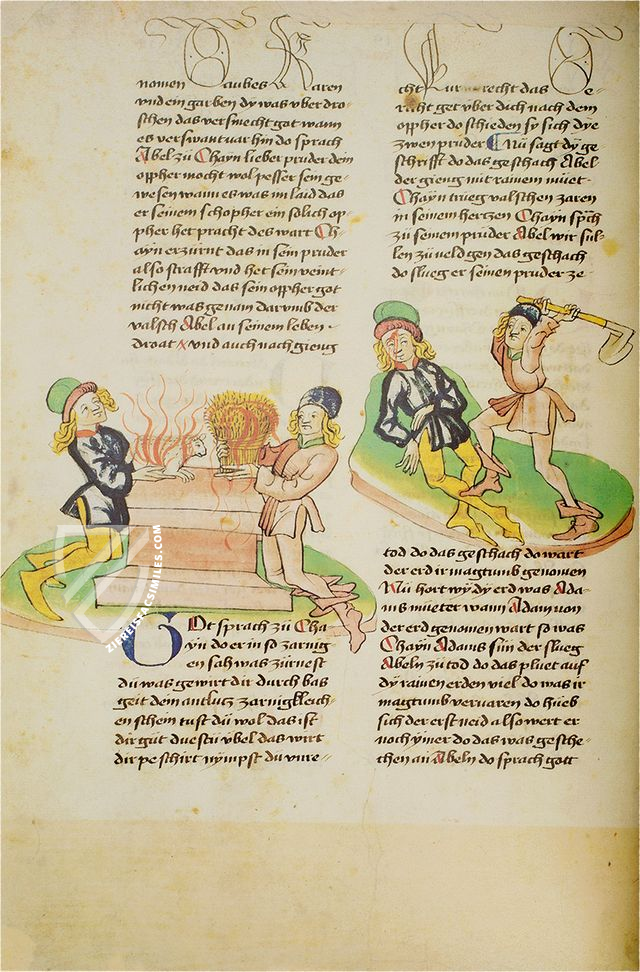 nomen Taubes Karen
vnd ein garben dy was vber dro-
schen das versmecht got wann
es verswantuar hin do sprach
Abel zü Chayn lieber prüder dem
oppher mocht wol pesser sein ge-
wesen wann es was im laid das
er seinem schopher ein solich op-
pher het pracht des wart Ch-
ayn erzürnt das in sein prüder
also strafft vnd het sein veint-
lichen neid das sein oppher got
nicht was genam darumb der
valsch Abel an seinem leben
droat x vnd auch nach gieng
Got sprach zü Cha
yn do er in so zarnig-
en sah was zürnest
dü was gewirt dir durch bas
geit dem antlucz zarnigkleich-
en schem tust dü wol das ist
dir güt duestü vbel das wirt
dir pe schirt nympst dü vnre-
cht recht das
get vber dich nach dem
oppher do schieden sy sich dye
zwen prüder Nü sagt dÿ ge-
schrifft do das geschach Abel
der gieng mit rainem müet
Chayn trüeg valschen zaren
in seinem hertzen Chayn spch
zü seinem prüder Abel wir sul-
len zü veldgen das geschach
do slueg er seinen prüder ze-
tod do das geschach do wart
der erd ir magtumb genomen
Nü hort wÿ dy erd was Ada-
ms müeter wann Adam von
der erd genomen wart so was
Chayn Adams sün der slueg
Abeln zü tod do das pluet auf
dÿ rainen erden viel do was ir
magtumb vervaren do hüeb
sich der erst neid also wert er
noch ymer do das was gesche-
chen an Abeln do sprach gott
ZIEREISFACSIMILES.COM